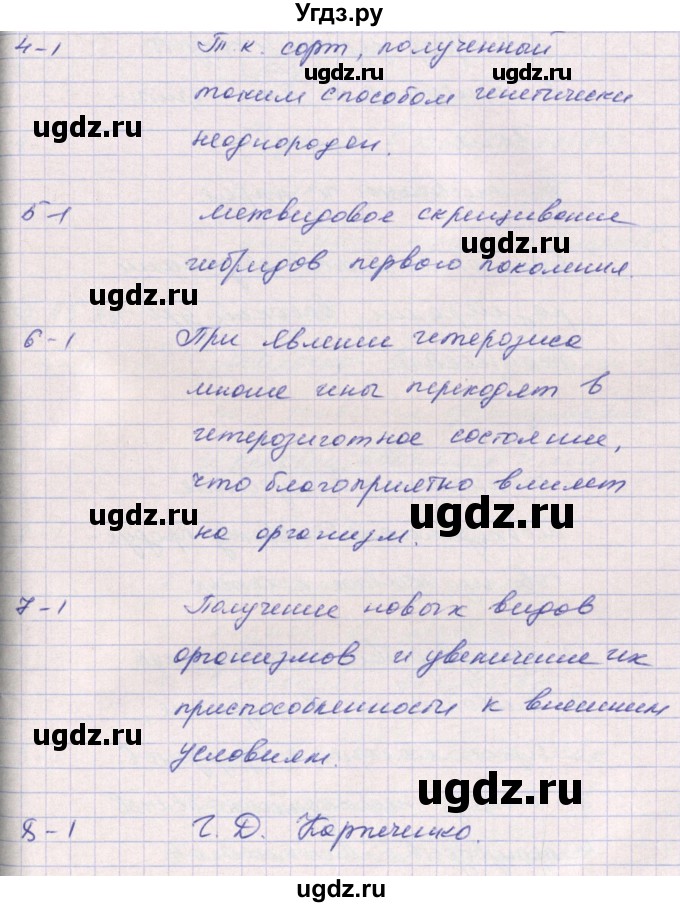 Угдз.ру
4-1 Т.к. сорт, полученный
ugdz.ru ugdz.ru
таким способом генетически
ugdz.ru
неоднороден.
5-1 межвидовое скрещивание
ugdz.ru
гибридов первого поколения.
ugdz.ru
6-1 При явлении гетерозиса
ugdz.ru
многие гены переходят в
гетерозиготное состояние,
что благоприятно влияет
ugdz.ru ugdz.ru
на организм.
7-1 Получение новых видов
ugdz.ru
организмов и увеличение их
приспособленности к внешним
ugdz.ru
условиям.
ugdz.ru
8-1 Г. Д. Карпеченко.
ugdz.ru